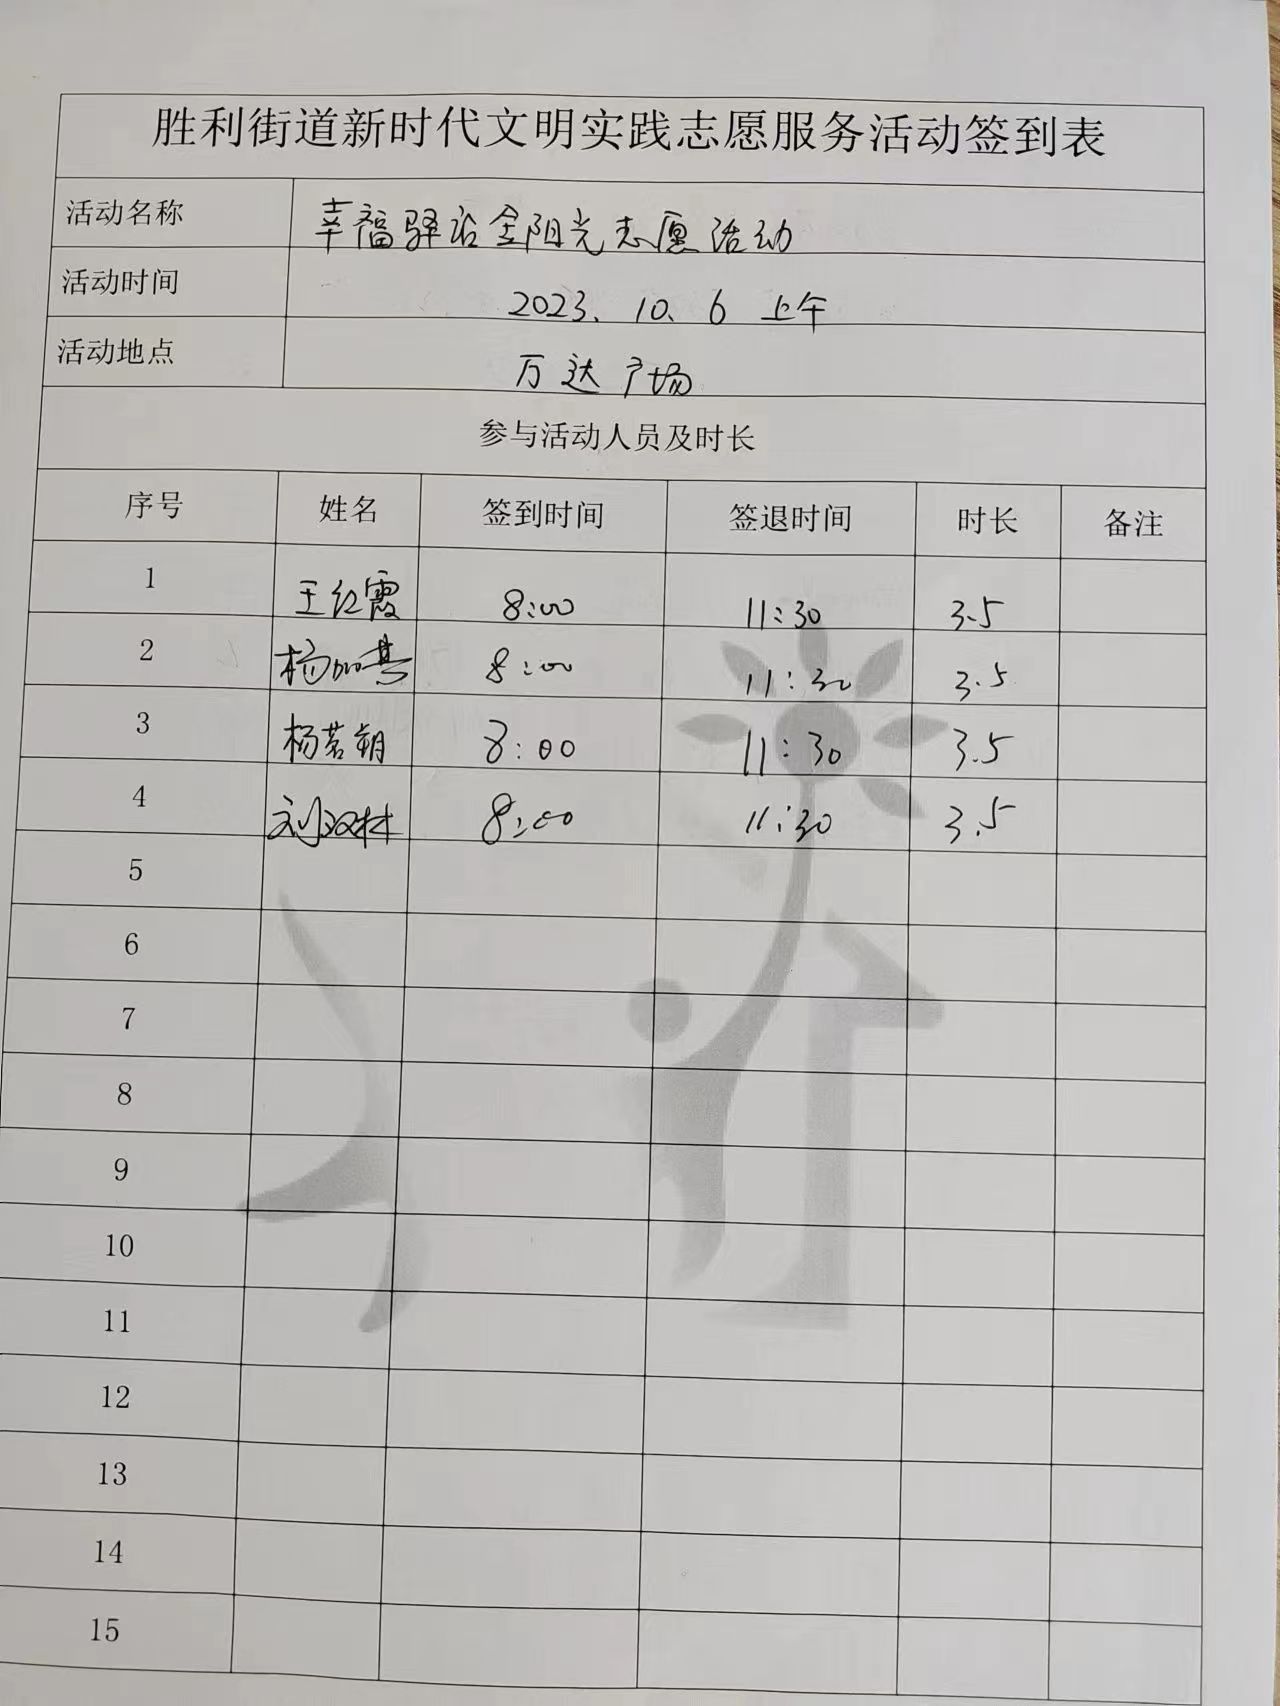 胜利街道新时代文明实践志愿服务活动签到表
活动名称 幸福驿站金阳光志愿活动
活动时间 2023、10、6 上午
活动地点 万达广场
参与活动人员及时长
序号 姓名 签到时间 签退时间 时长 备注
1 王红霞 8:00 11:30 3.5
2 8:00 11:30 3.5
3 杨茗朝 8:00 11:30 3.5
4 刘汉林 8:00 11:30 3.5
5
6
7
8
9
10
11
12
13
14
15